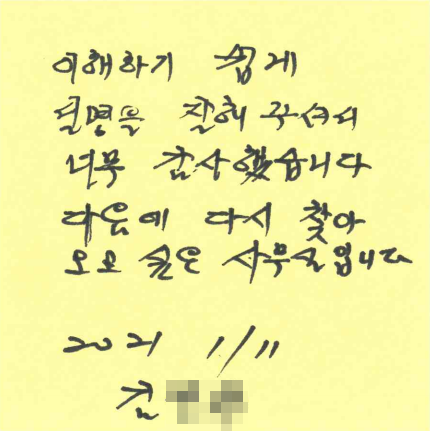 이해하기 쉽게
설명을 잘해 주셔서
너무 감사했습니다
다음에 다시 찾아
오고 싶은 사무실입니다
2021 1/11
김